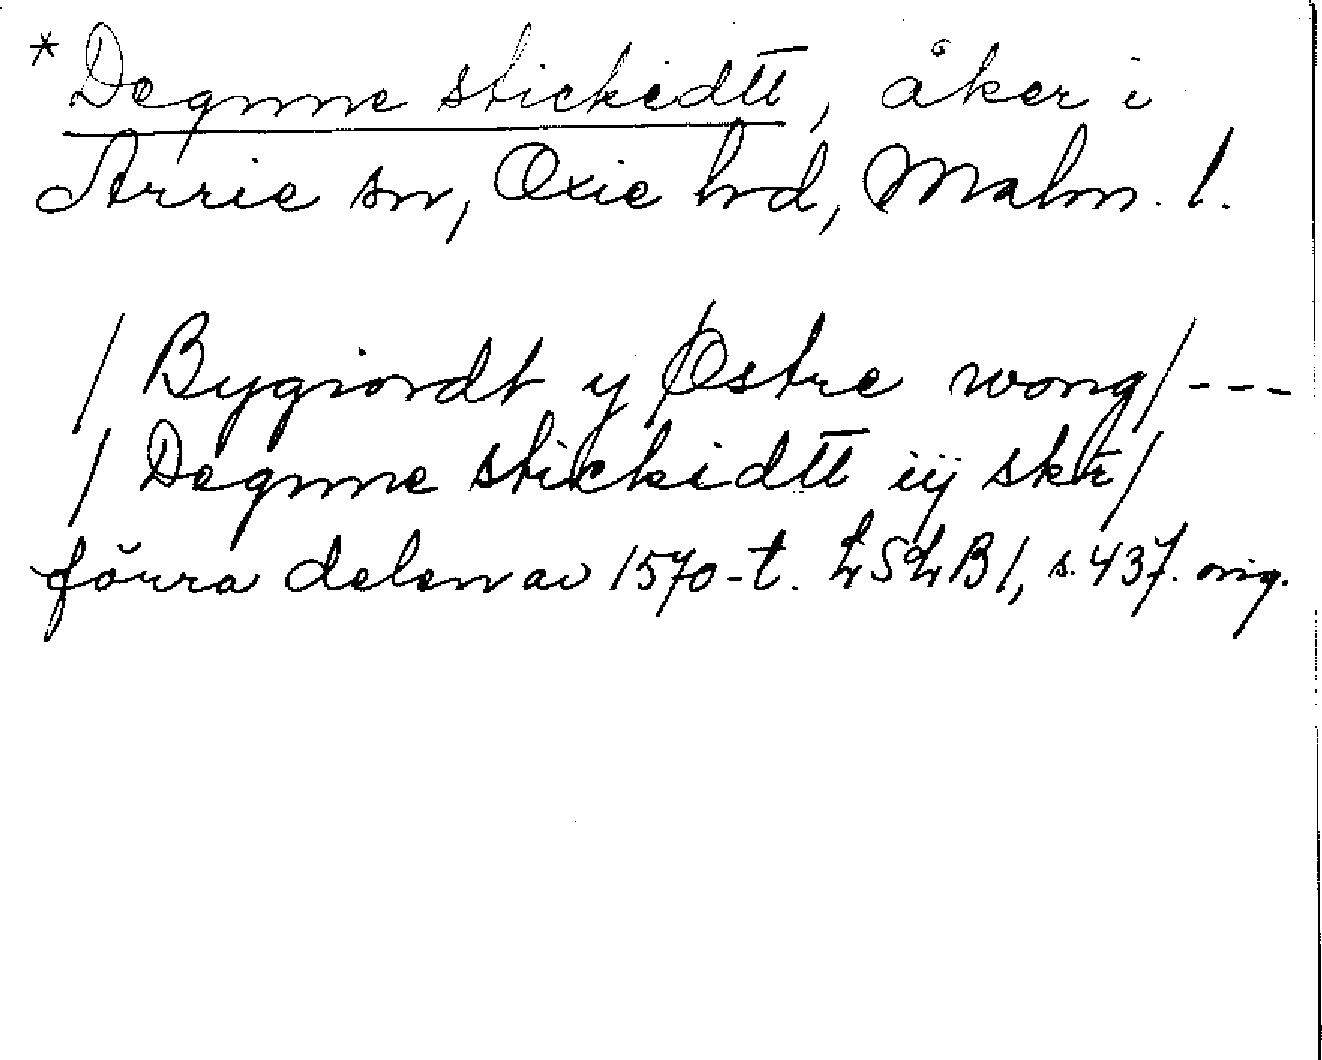 *Degnne stickidtt, åker i
Arrie sn, Oxie hd, Malm. l.
/ Bygiordt y Østre wong / ---
/ Degnne stickidtt iij skr /
förra delen av 1570-t. LSLB 1, s. 437. orig.